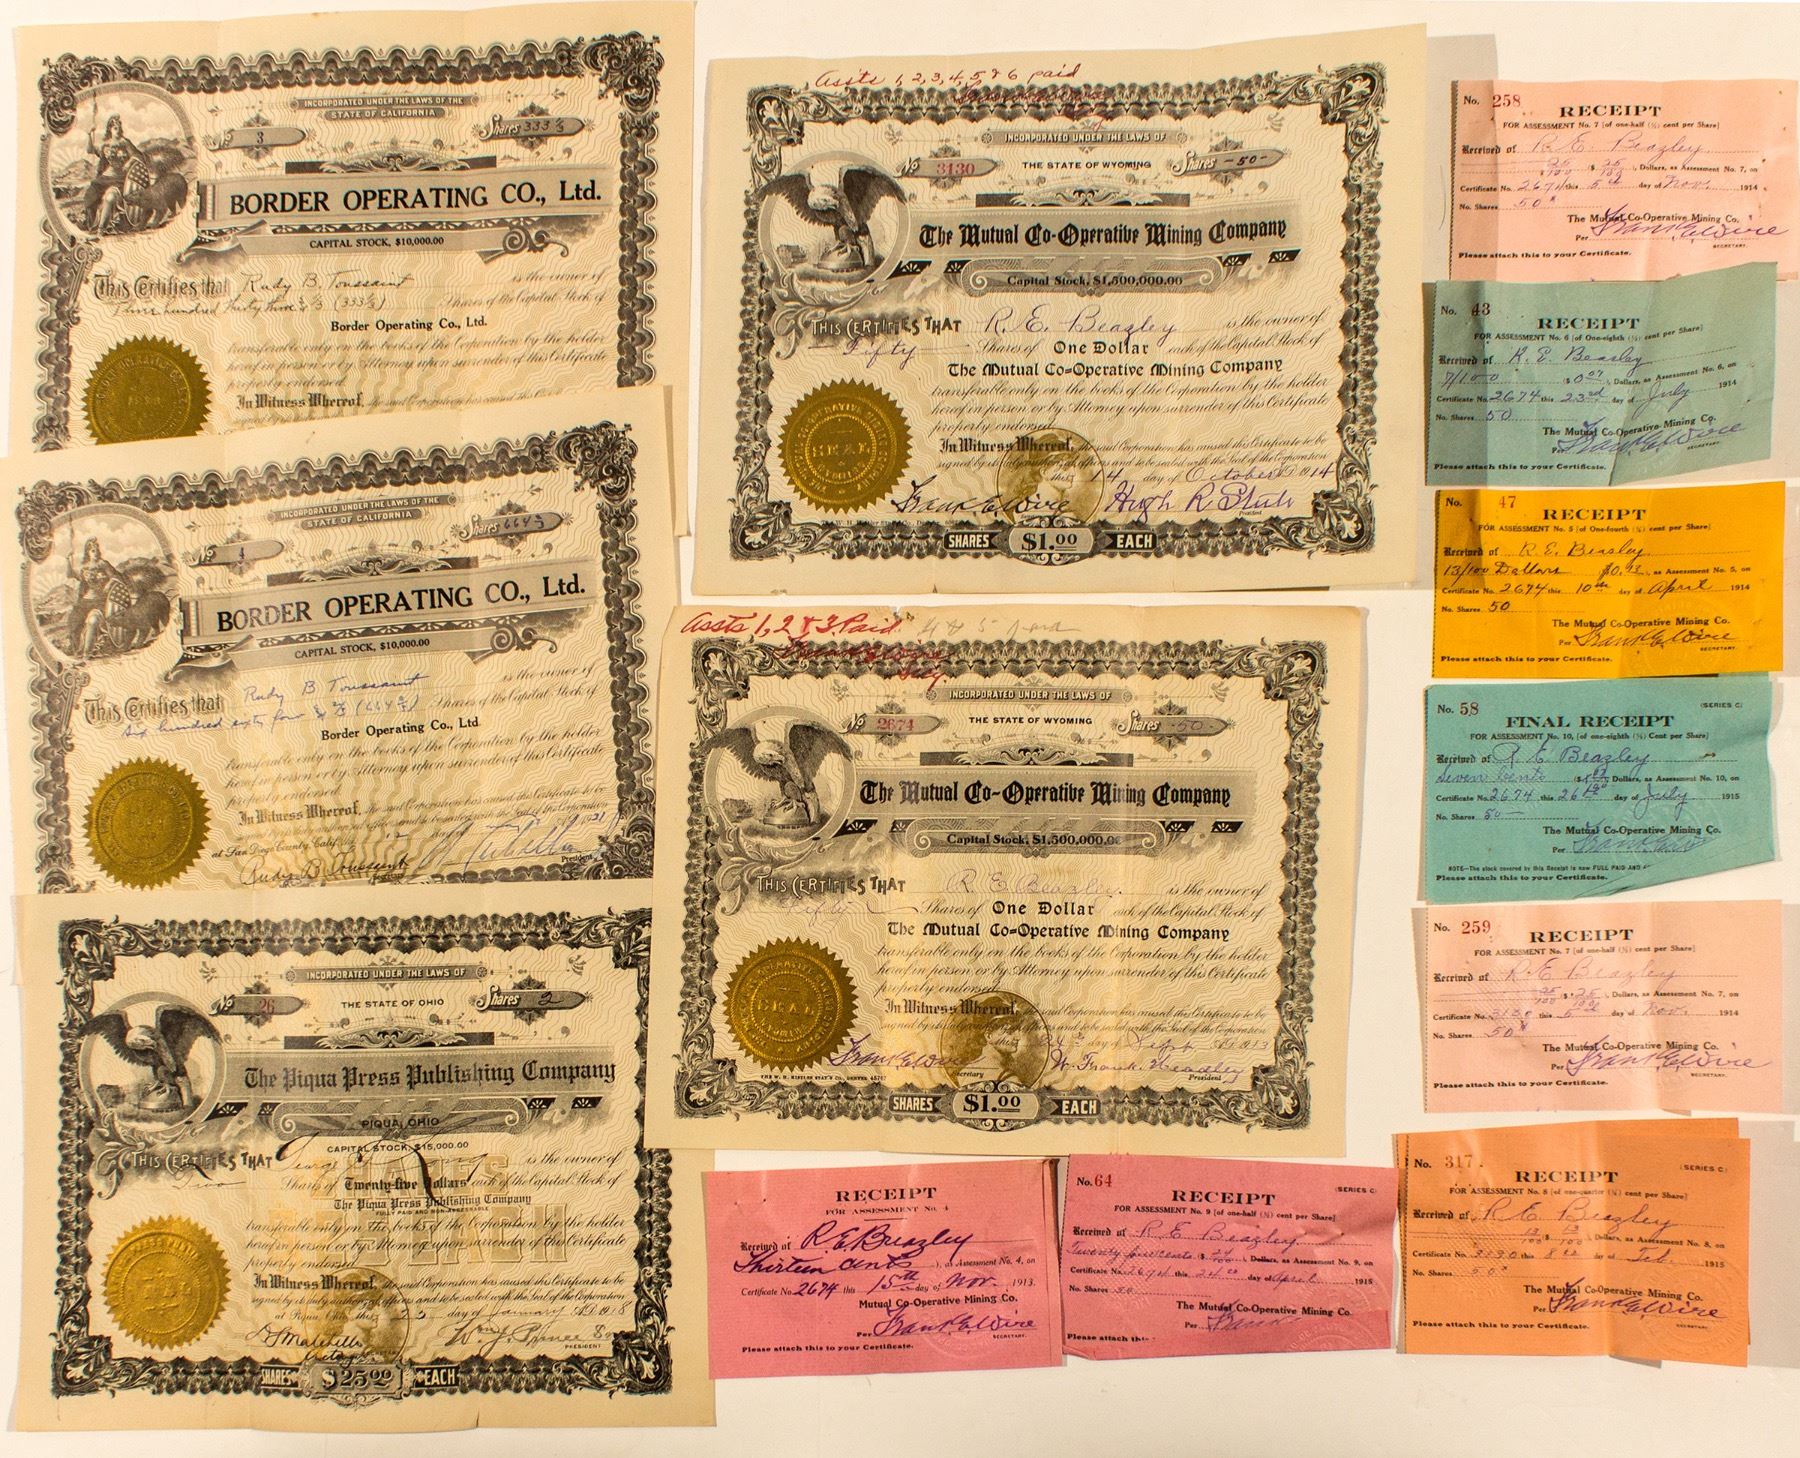 INCORPORATED UNDER THE LAWS OF THE
STATE OF CALIFORNIA
No 3
Shares 333 1/3
BORDER OPERATING CO., Ltd.
CAPITAL STOCK, $10,000.00
This Certifies that Rudy B. Toussaint is the owner of
hundred thirty three & (333 1/3) Shares of the Capital Stock of
Border Operating Co., Ltd.
transferable only on the books of the Corporation by the holder
hereof in person or by Attorney upon surrender of this Certificate
properly endorsed.
In Witness Whereof, the said Corporation has caused this Certificate to be
INCORPORATED UNDER THE LAWS OF THE
STATE OF CALIFORNIA
No 4
Shares 664 2/3
BORDER OPERATING CO., Ltd.
CAPITAL STOCK, $10,000.00
This Certifies that Rudy B Toussaint is the owner of
Six hundred sixty four & 2/3 (664 2/3) Shares of the Capital Stock of
Border Operating Co., Ltd
transferable only on the books of the Corporation by the holder
hereof in person or by Attorney upon surrender of this Certificate
properly endorsed.
In Witness Whereof, the said Corporation has caused this Certificate to be
signed by its duly authorized officers and to be sealed with the Seal of the Corporation
at San Diego County, Calif.
Rudy B. Toussaint
President
INCORPORATED UNDER THE LAWS OF
THE STATE OF OHIO
No 26
Shares 2
The Piqua Press Publishing Company
PIQUA, OHIO
CAPITAL STOCK, $15,000.00
THIS CERTIFIES THAT George is the owner of
Two Shares of Twenty-five Dollars each of the Capital Stock of
The Piqua Press Publishing Company
FULLY PAID AND NON-ASSESSABLE
transferable only on the books of the Corporation by the holder
hereof in person or by Attorney upon surrender of this Certificate
properly endorsed.
In Witness Whereof, the said Corporation has caused this Certificate to be
signed by its duly authorized officers and to be sealed with the Seal of the Corporation
at Piqua, Ohio this day of January A.D. 1918
PRESIDENT
SHARES $25.00 EACH
Assts 1, 2, 3, 4, 5 & 6 paid
INCORPORATED UNDER THE LAWS OF
THE STATE OF WYOMING
No 3130
Shares -50-
The Mutual Co-Operative Mining Company
Capital Stock, $1,500,000.00
THIS CERTIFIES THAT R. E. Beazley is the owner of
Fifty Shares of One Dollar each of the Capital Stock of
The Mutual Co-Operative Mining Company
transferable only on the books of the Corporation by the holder
hereof in person or by Attorney upon surrender of this Certificate
properly endorsed.
In Witness Whereof, the said Corporation has caused this Certificate to be
signed by its duly authorized officers and to be sealed with the Seal of the Corporation
this 14 day of October A.D. 1914
Frank E. Wire
President
SEAL
SHARES $1.00 EACH
Assts 1, 2 & 3 Paid 4 & 5 paid
Frank E. Wire
Secy
INCORPORATED UNDER THE LAWS OF
THE STATE OF WYOMING
No 2674
Shares -50-
The Mutual Co-Operative Mining Company
Capital Stock, $1,500,000.00
THIS CERTIFIES THAT R E Beazley is the owner of
Fifty Shares of One Dollar each of the Capital Stock of
The Mutual Co-Operative Mining Company
transferable only on the books of the Corporation by the holder
hereof in person or by Attorney upon surrender of this Certificate
properly endorsed.
In Witness Whereof, the said Corporation has caused this Certificate to be
signed by its duly authorized officers and to be sealed with the Seal of the Corporation
this 24th day of Sept A.D. 1913
Frank E. Wire
Secretary
W. Frank
President
SEAL
SHARES $1.00 EACH
No. 258
RECEIPT
FOR ASSESSMENT No. 7 [of one-half (½) cent per Share]
Received of R. E. Beazley
25/100 ($ 25/100), Dollars, as Assessment No. 7, on
Certificate No. 2674 this 5th day of Nov. 1914
No. Shares 50
The Mutual Co-Operative Mining Co.
Per Frank E. Wire
SECRETARY.
Please attach this to your Certificate.
No. 43
RECEIPT
FOR ASSESSMENT No. 6 [of One-eighth (⅛) cent per Share]
Received of R. E. Beasley
7/100 $0.07, Dollars, as Assessment No. 6, on
Certificate No. 2674 this 23rd day of July 1914
No. Shares 50
The Mutual Co-Operative Mining Co.
Per Frank E. Wire
Please attach this to your Certificate.
No. 47
RECEIPT
FOR ASSESSMENT No. 5 [of One-fourth (¼) cent per Share]
Received of R. E. Beasley
13/100 Dollars $0.13, as Assessment No. 5, on
Certificate No. 2674 this 10th day of April 1914
No. Shares 50
The Mutual Co-Operative Mining Co.
Per Frank E. Wire
SECRETARY.
Please attach this to your Certificate.
No. 58
(SERIES C)
FINAL RECEIPT
FOR ASSESSMENT No. 10, [of one-eighth (⅛) Cent per Share]
Received of R E Beazley
Seven Cents Dollars, as Assessment No. 10, on
Certificate No. 2674 this 26 day of July 1915
No. Shares 50
The Mutual Co-Operative Mining Co.
Per Frank E. Wire
NOTE—The stock covered by this Receipt is now FULL PAID AND
Please attach this to your Certificate.
No. 259
RECEIPT
FOR ASSESSMENT No. 7 [of one-half (½) cent per Share]
Received of R. E. Beazley
25/100 ($ 25/100), Dollars, as Assessment No. 7, on
Certificate No. 3130 this 5th day of Nov. 1914
No. Shares 50
The Mutual Co-Operative Mining Co.
Per Frank E. Wire
SECRETARY.
Please attach this to your Certificate.
RECEIPT
FOR ASSESSMENT No. 4
Received of R. E. Beazley
Thirteen cents, as Assessment No. 4, on
Certificate No. 2674 this 15th day of Nov. 1913.
Mutual Co-Operative Mining Co.
Per Frank E. Wire
SECRETARY.
Please attach this to your Certificate.
No. 64
(SERIES C)
RECEIPT
FOR ASSESSMENT No. 9 [of one-half (½) cent per Share]
Received of R E Beazley
Twenty five cents Dollars, as Assessment No. 9, on
Certificate No. 2674 this 24 day of April 1915
No. Shares 50
The Mutual Co-Operative Mining Co.
Per Frank
Please attach this
No. 317
(SERIES C)
RECEIPT
FOR ASSESSMENT No. 8 [of one-quarter (¼) cent per Share]
Received of R E Beazley
13/100 ($ 13/100), Dollars, as Assessment No. 8, on
Certificate No. 3130 this 8th day of Feb. 1915
No. Shares 50
The Mutual Co-Operative Mining Co.
Per Frank E. Wire
SECRETARY.
Please attach this to your Certificate.